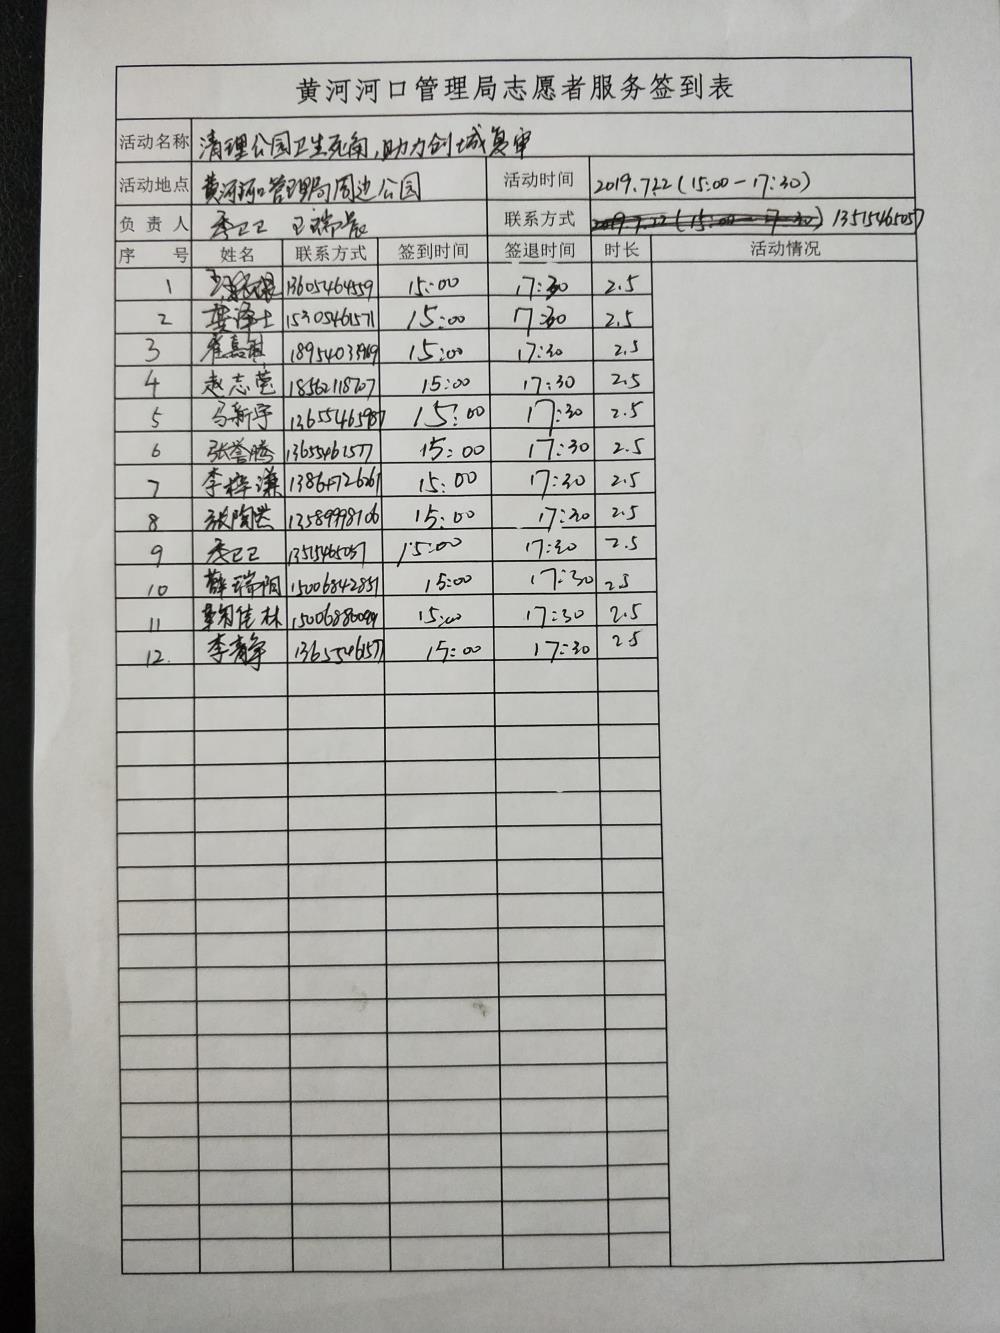 黄河河口管理局志愿者服务签到表
活动名称 清理公园卫生死角,助力创城复审
活动地点 黄河河口管理局周边公园 活动时间 2019.7.22(15:00-17:30)
负责人 季卫卫 王瑞晨 联系方式 2019.7.22(15:00-17:30) 13515465057
序号 姓名 联系方式 签到时间 签退时间 时长 活动情况
1 13605464559 15:00 17:30 2.5
2 龚泽士 15305461571 15:00 17:30 2.5
3 崔嘉 15:00 17:30 2.5
4 赵志莹 18562118707 15:00 17:30 2.5
5 马新宇 13655465987 15:00 17:30 2.5
6 张誉腾 13655461577 15:00 17:30 2.5
7 李梓谦 15:00 17:30 2.5
8 张陶然 13589998106 15:00 17:30 2.5
9 季卫卫 13515465057 15:00 17:30 2.5
10 薛瑞阳 15006842851 15:00 17:30 2.5
11 鞠佳林 15:00 17:30 2.5
12. 李静 13655461577 15:00 17:30 2.5